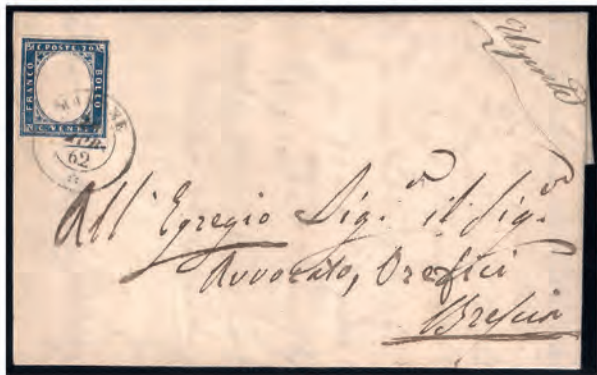 Urgente
C. POSTE. 20
FRANCO
BOLLO
C. VENTI
APR.
62
All' Egregio Sig.r il Sig.r
Avvocato, Orefici
Brescia